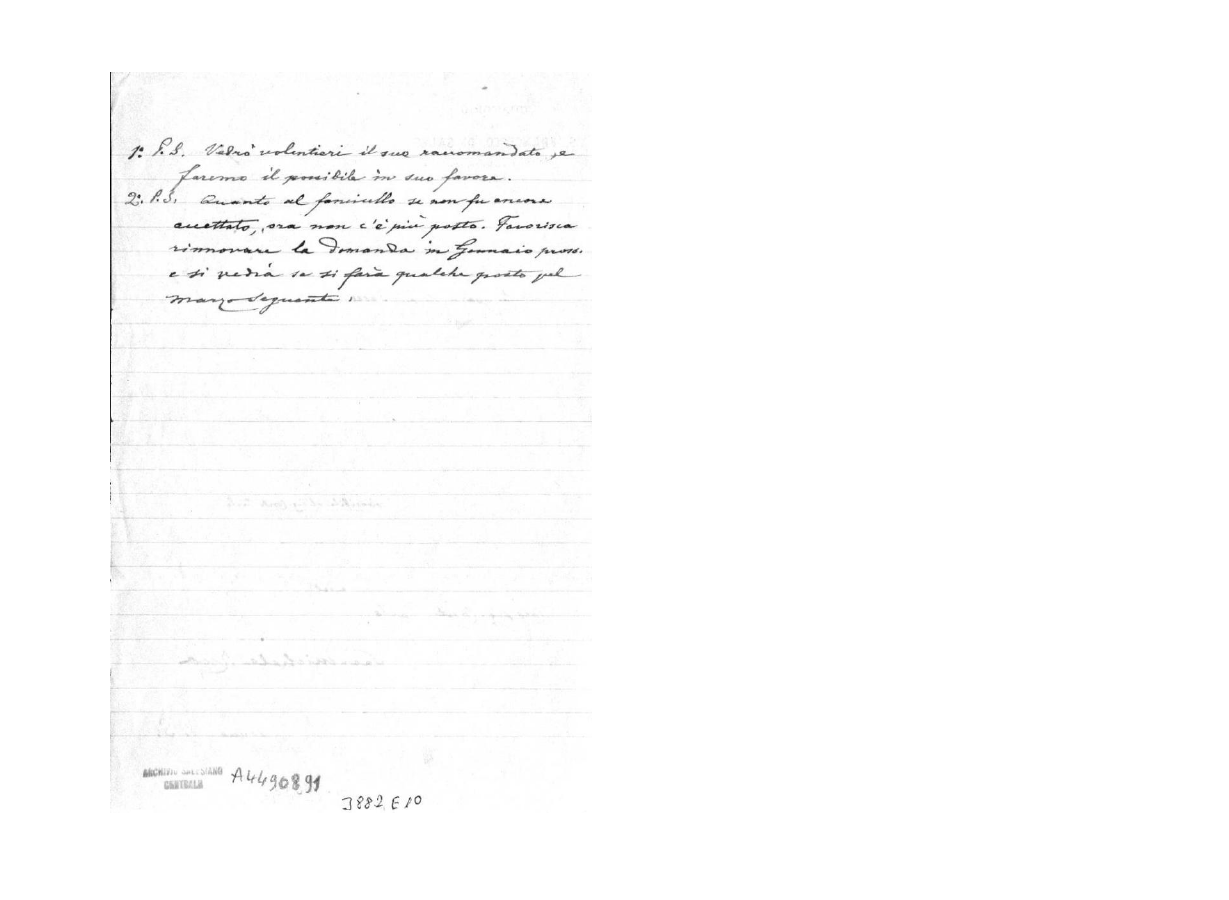 1º P.S. Vedrò volentieri il suo raccomandato, e
faremo il possibile in suo favore.
2º. P.S. Quanto al fanciullo se non fu ancora
accettato, ora non c'è più posto. Favorisca
rinnovare la domanda in Gennaio pross.
e si vedrà se si farà qualche posto pel
marzo seguente.
ARCHIVIO SALESIANO
CENTRALE
A4490891
3882 E10